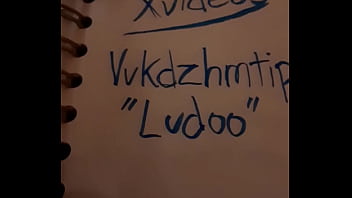 xvideos
Vvkdzhmtip
"Ludoo"